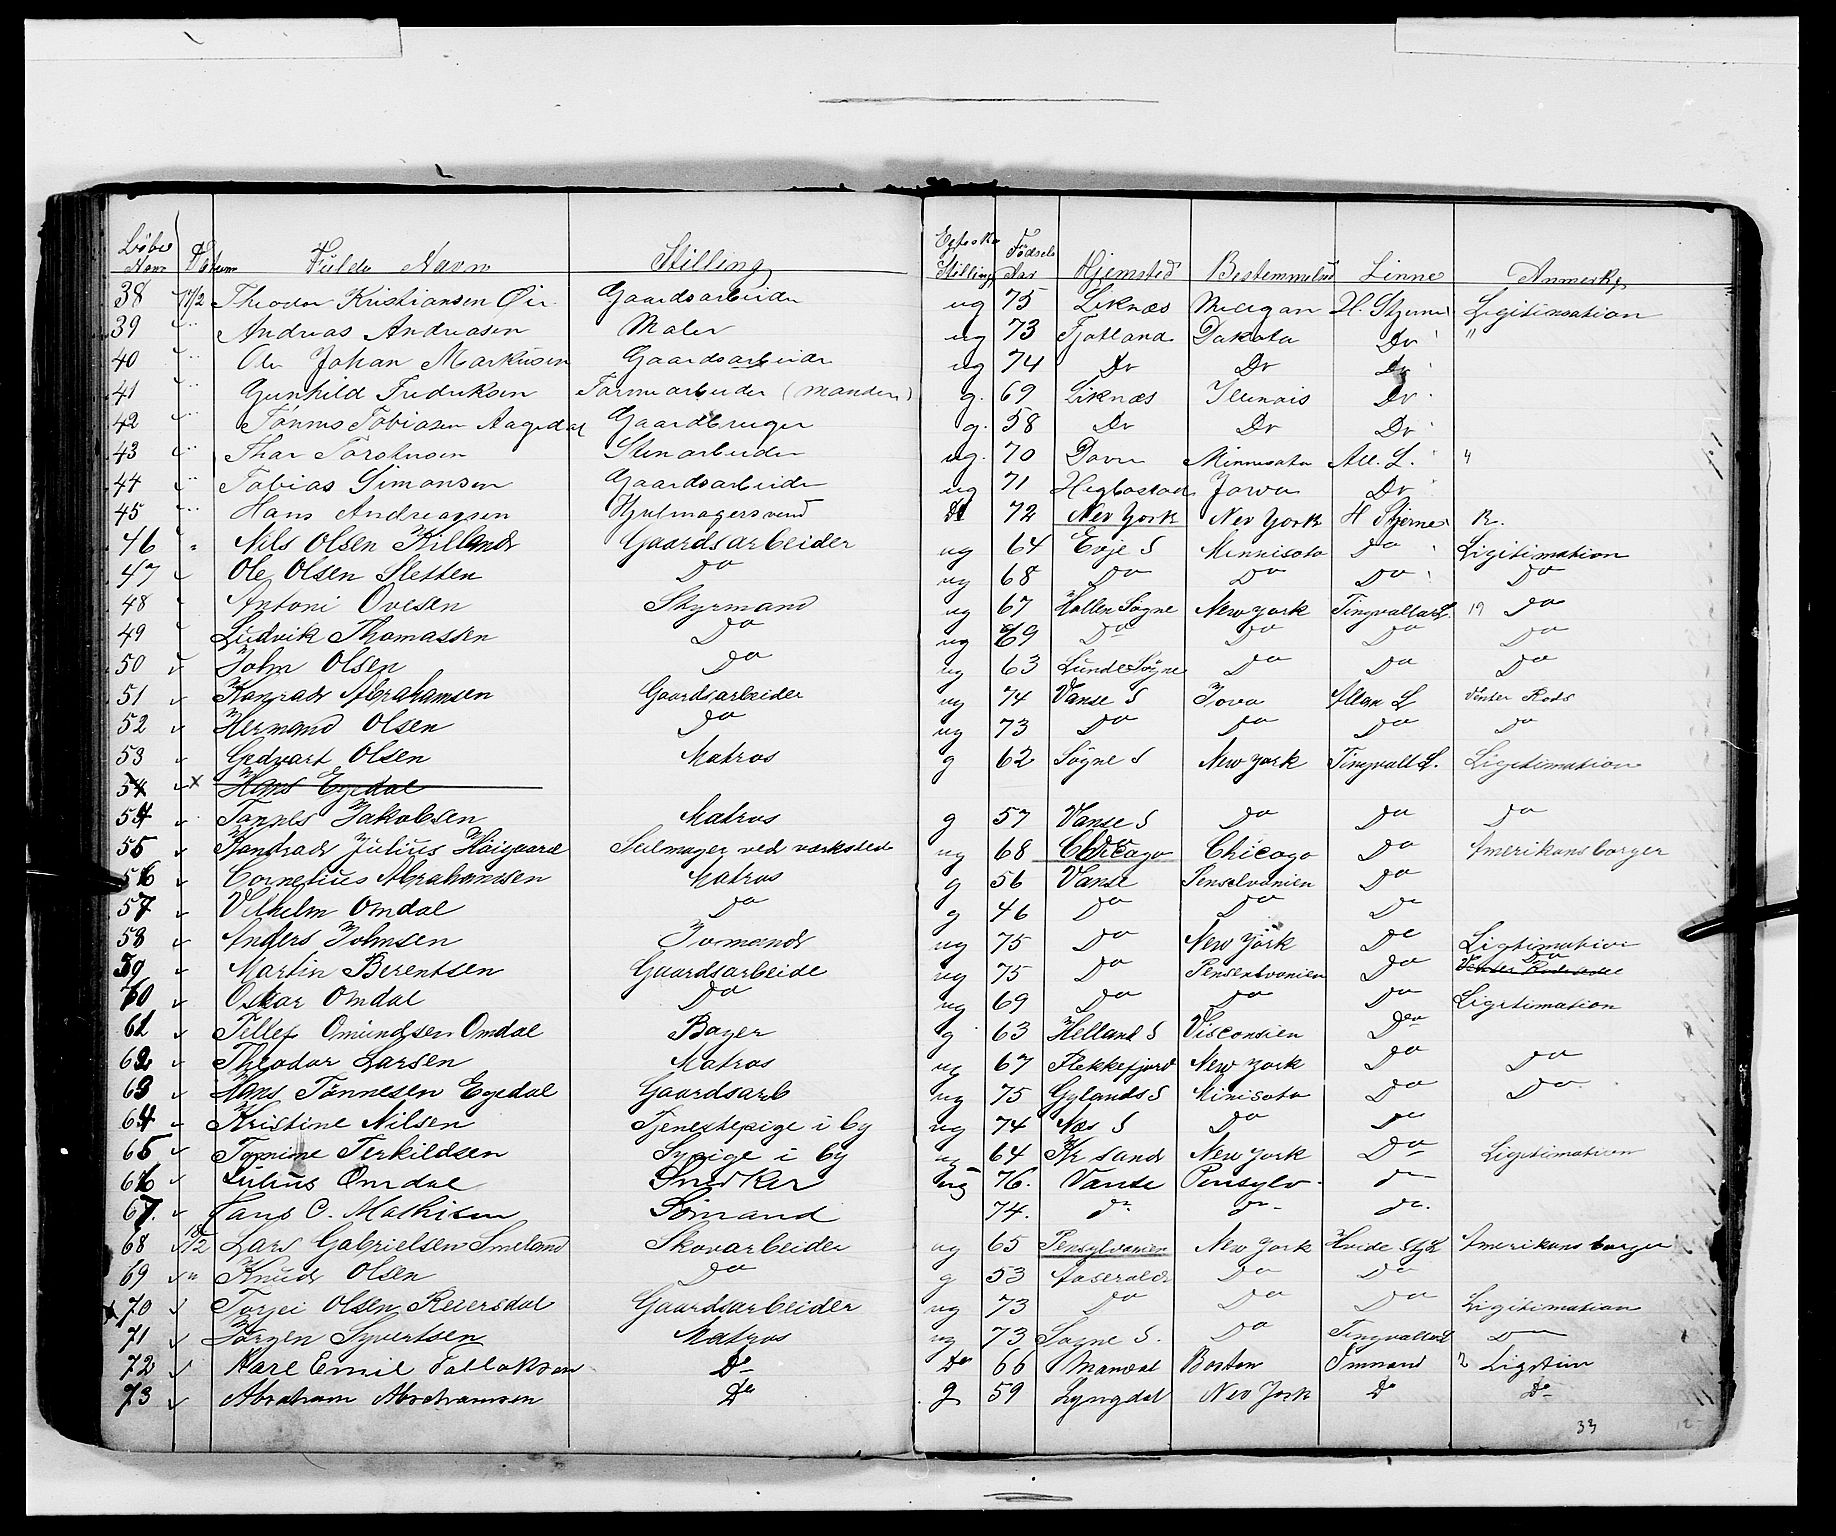 Løbe Navn Datum Fulde Navn Stilling Egtesk. Stilling Fødsels Aar Hjemsted Bestemmelsd Linne Anmerkg.
38 17/2 Theodor Kristiansen Gaardsarbeider ug 75 Liknæs H. Stjerne Legitimation
39 " Andreas Andreasen Maler ug 73 Fjotland Dakota Do "
40 " Ole Johan Markusen Gaardsarbeider ug 74 Do Do Do
41 " Gunhild Fredriksen Farmearbeider (manden) g. 69 Liknæs Ilinois Do
42 " Tønnes Tobiasen Aagedal Gaardbruger g. 58 Do Do Do
43 " Thor Stenarbeider ug. 70 Minnesota All. L. "
44 " Tobias Simonsen Gaardsarbeider ug 71 Hegbostad Jowa Do
45 " Hans Andreassen Hjulmagersvend Do 72 New York New York H Stjerne R.
46 " Nils Olsen Killand Gaardsarbeider ug 64 Evje S Minnisota Do Ligitimation
47 Ole Olsen Sletten Do ug 68 Do Do Do Do
48 Antoni Ovesen Styrmand ug 67 Hallen Søgne New York Tingvalla L. 19 Do
49 Ludvik Thomassen Do ug 69 Do Do Do Do
50 John Olsen Do ug 63 Lunde Søgne Do Do Do
51 Konrad Abrahamsen Gaardsarbeider ug 74 Vanse S Jova Allan L Venter Rods
52 Hermand Olsen Do ug 73 Do Do Do Do
53 Gedvart Olsen Matros g 62 Søgne S New York Tingvall L. Ligitimation
54 x Hans Egedal
54 Tønnes Jakobsen Matros g 57 Vanse S Do Do Do
55 Kondrad Julius Høigaard Seilmager ved værksted ug 68 Chicago Chicago Do Amerikansborger
56 Cornelius Abrahamsen Matros g 56 Vanse Penselvanien Do
57 Vilhelm Omdal Do g 46 Do Do Do
58 Anders Johnsen Jomand ug 75 Do New York Do Ligtimation
59 Martin Berentsen Gaardsarbeide ug 75 Do Penselvanien Do Do
60 Oskar Omdal Do ug 69 Do Do Do Ligitimation
61 Tellef Omundsen Omdal Bager g 63 Helland S Visconsien Do
62 Theodor Larsen Matros ug 67 Flekkefjord New York Do Do
63 Hans Tønnesen Egedal Gaardsarb ug 75 Gylands S Minisota Do Do
64 Kristine Nilsen Tjenestepige i by ug 74 Næs S Do Do
65 Tomine Terkildsen Sypige i by ug 64 Kr sand New York Do Ligitimation
66 Julius Omdal Snedker ug 76. Vanse Pensylv. do
67. C. Mathisen Sømand 74. do do do.
68 18/2 Lars Gabrielsen Smeland Skovarbeider ug 65 Pensylvanien New York Hvide Stj L Amerikansborger
69 " Knud Olsen Do g 53 Aaseral Do Do
70 Torjei Olsen Reiersdal Gaardsarbeider ug 73 Do Do Do Ligitimation
71 Jørgen Syvertsen Matros ug 73 Søgne S. Do Tingvalla L Do
72 Karl Emil Tallaksen Do Do 66 Mandal Boston Inmand 2 Ligitim
73 Abraham Abrahamsen Do g 59 Lyngdal New York Do Do
33
12